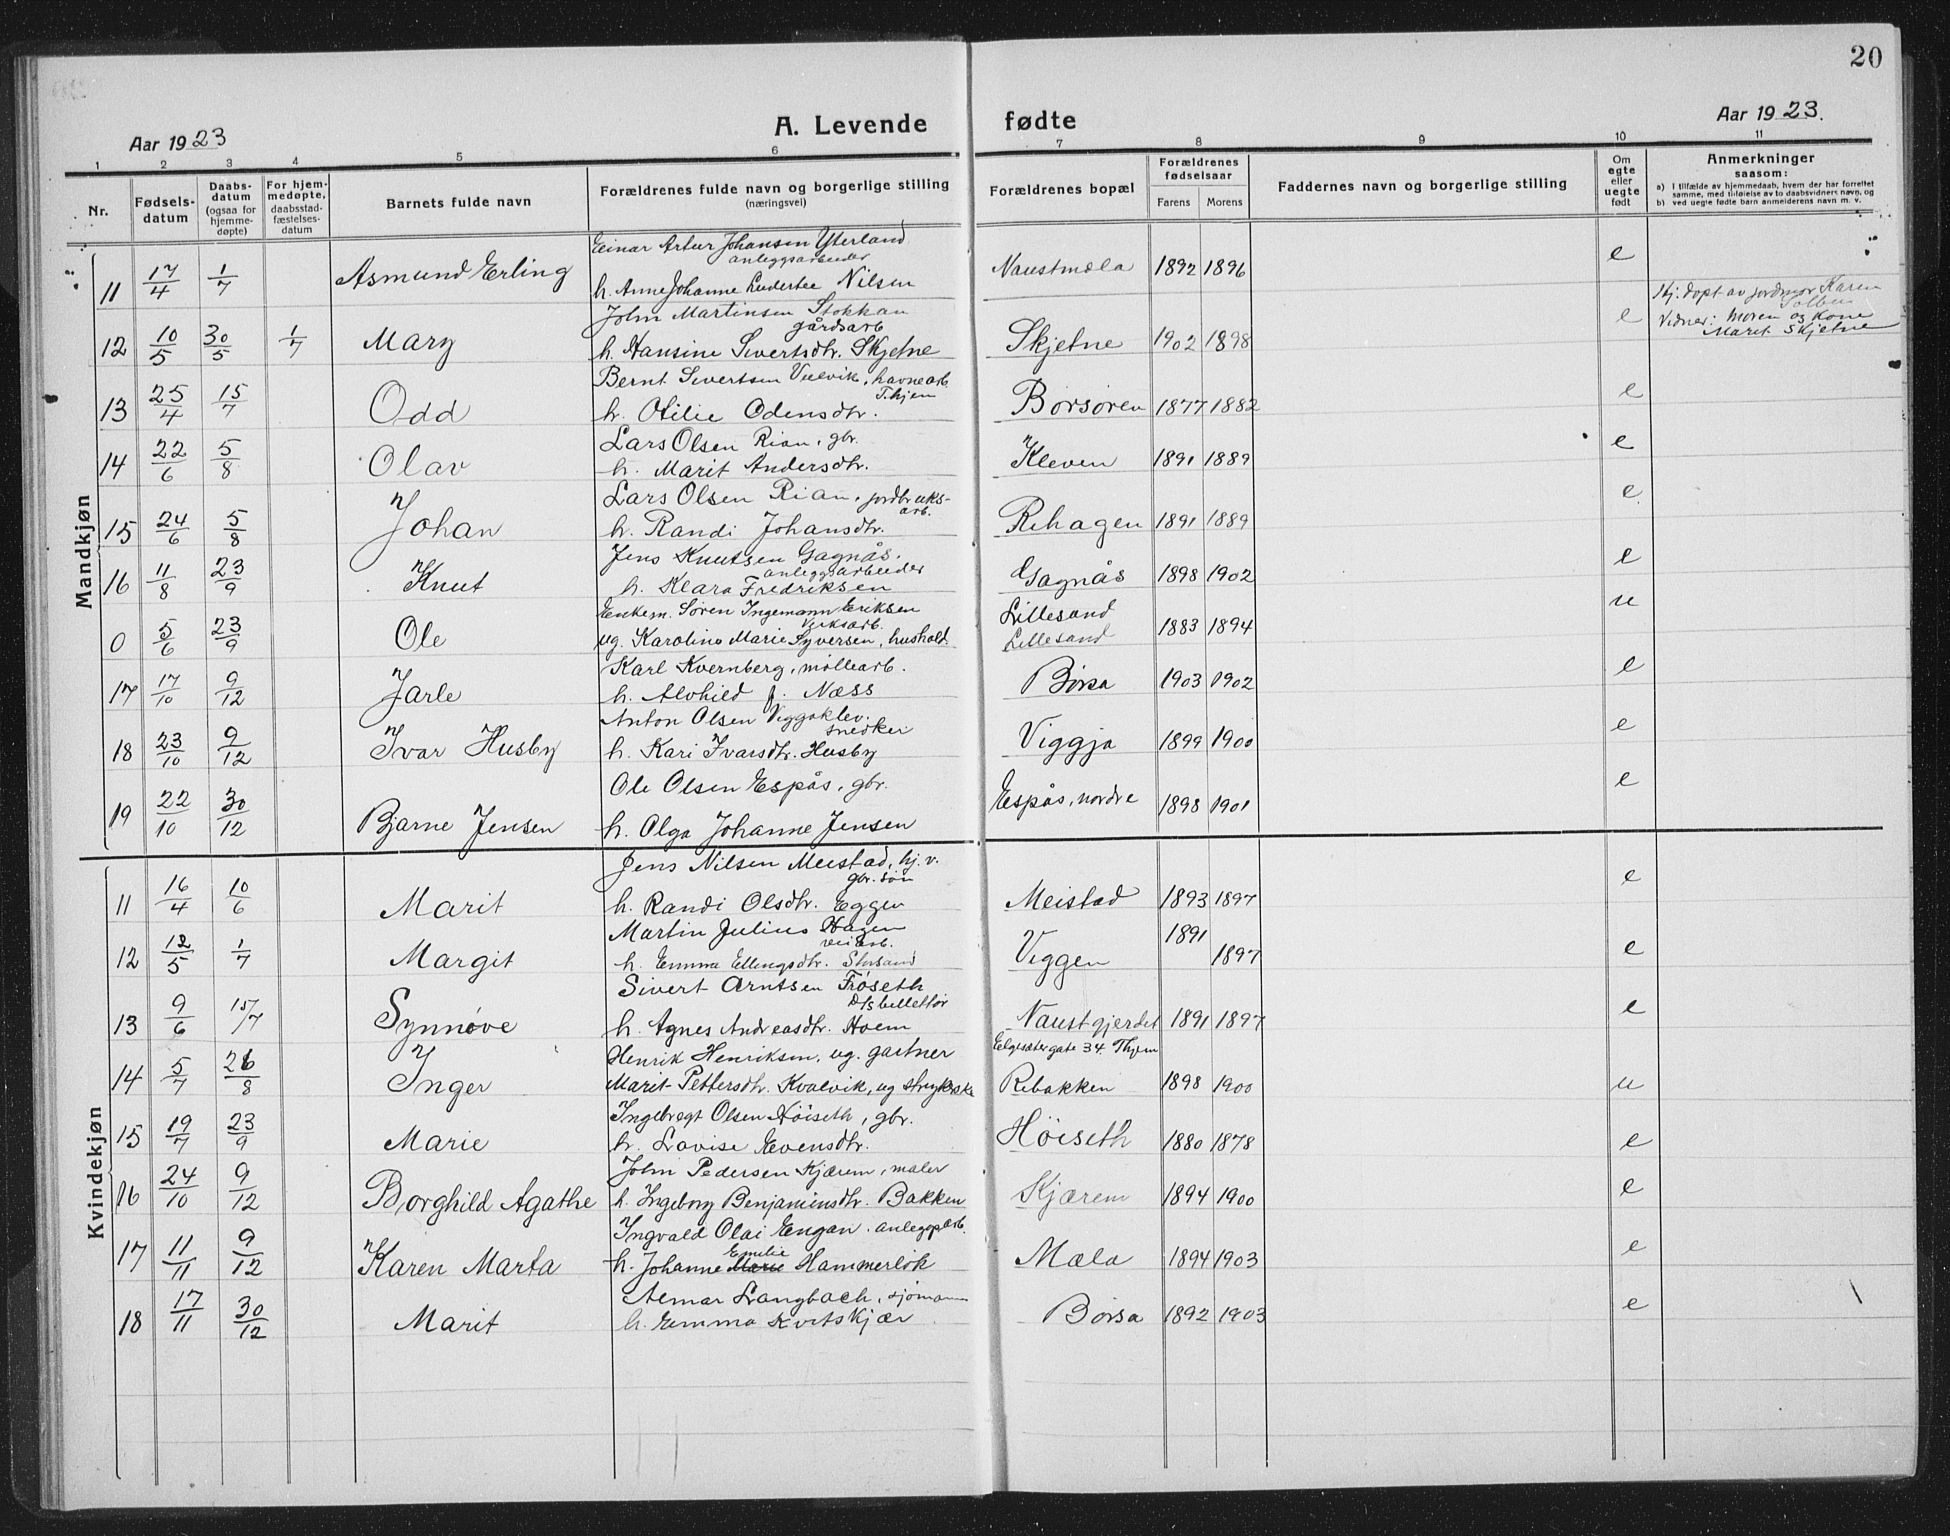 20
Aar 1923
A. Levende fødte
Aar 1923.
1 2 3 4 5 6 7 8 9 10 11
Nr.
Fødsels-
datum
Daabs-
datum
(ogsaa for
hjemme-
døpte)
For hjem-
medøpte,
daabsstad-
fæstelses-
datum
Barnets fulde navn
Forældrenes fulde navn og borgerlige stilling
(næringsvei)
Forældrenes bopæl
Forældrenes
fødselsaar
Farens Morens
Faddernes navn og borgerlige stilling
Om
egte
eller
uegte
født
Anmerkninger
saasom:
a) I tilfælde av hjemmedaab, hvem der har forrettet
samme, med tilføielse av to daabsvidners navn, og
b) ved uegte fødte barn anmelderens navn m. v.
Mandkjøn
Einar Artur Johansen Yterland
anleggsarbeider
11 17/4 1/7 Asmund Erling h. Anne Johanne Ludertee Nilsen Naustmela 1892 1896 e
John Martinsen Stokkan
gårdsarb
12 10/5 30/5 1/7 Mary h. Hansine Sivertsdtr. Skjetne Skjetne 1902 1898 e
Hj: døpt av jordmor Karen
Solben
Vidner: Moren og Kone
Marit Skjetne
Bernt Sivertsen Viggvik, havnearb.
T.hjem
13 25/4 15/7 Odd h. Otilie Odensdtr. Børsøren 1877 1882 e
Lars Olsen Rian, gbr.
14 22/6 5/8 Olav h. Marit Andersdtr. Kleven 1891 1889 e
Lars Olsen Rian, jordbruks-
arb.
15 24/6 5/8 Johan h. Randi Johansdtr. Rehagen 1891 1889 e
Jens Knutsen Gagnås.
anleggsarbeider
16 11/8 23/9 Knut h. Klara Fredriksen Gagnås 1898 1902 e
Enkem. Søren Ingemann Eriksen
Verksarb.
0 5/6 23/9 Ole ug. Karoline Marie Syversen, hushold. Lillesand
Lillesand 1883 1894 u
Karl Kvernberg, møllearb.
17 17/10 9/12 Jarle h. Alvhild f. Næss Børsa 1903 1902 e
Anton Olsen Viggaklev.
snedker
18 23/10 9/12 Ivar Husby h. Kari Ivarsdtr. Husby Viggja 1899 1900 e
Ole Olsen Espås, gbr.
19 22/10 30/12 Bjarne Jensen h. Olga Johanne Jensen Espås, nordre 1898 1901 e
Kvindekjøn
Jens Nilsen Meistad, hj. v.
gbr. søn
11 16/4 10/6 Marit h. Randi Olsdtr. Eggen Meistad 1893 1897 e
Martin Julius Hagen
veiarb.
12 12/5 1/7 Margit h. Emma Ellingsdtr. Storsand Viggen 1891 1897 e
Sivert Arntsen Frøseth
D/s billettør
13 9/6 15/7 Synnøve h. Agnes Andreasdtr. Hoem Naustgjerdet 1891 1897 e
Henrik Henriksen, ug. gartner Elgesæter gate 34. Thjem
14 5/7 26/8 Inger Marit Pettersdtr. Kvalvik, ug strykerske Rebakken 1898 1900 u
Ingebregt Olsen Høiseth, gbr.
15 19/7 23/9 Marie h. Lovise Evensdtr. Høiseth 1880 1878 e
John Pedersen Kjærem, maler
16 24/10 9/12 Borghild Agathe h. Ingeborg Benjaminsdtr. Bakken Skjærem 1894 1900 e
Ingvald Olai Engan. anleggsarb.
17 11/11 9/12 Karen Marta h. Johanne Marie Emilie Hammerløk Mæla 1894 1903 e
Aemar Langbach, sjømann
18 17/11 30/12 Marit h. Emma Kvitskjær Børsa 1892 1903 e